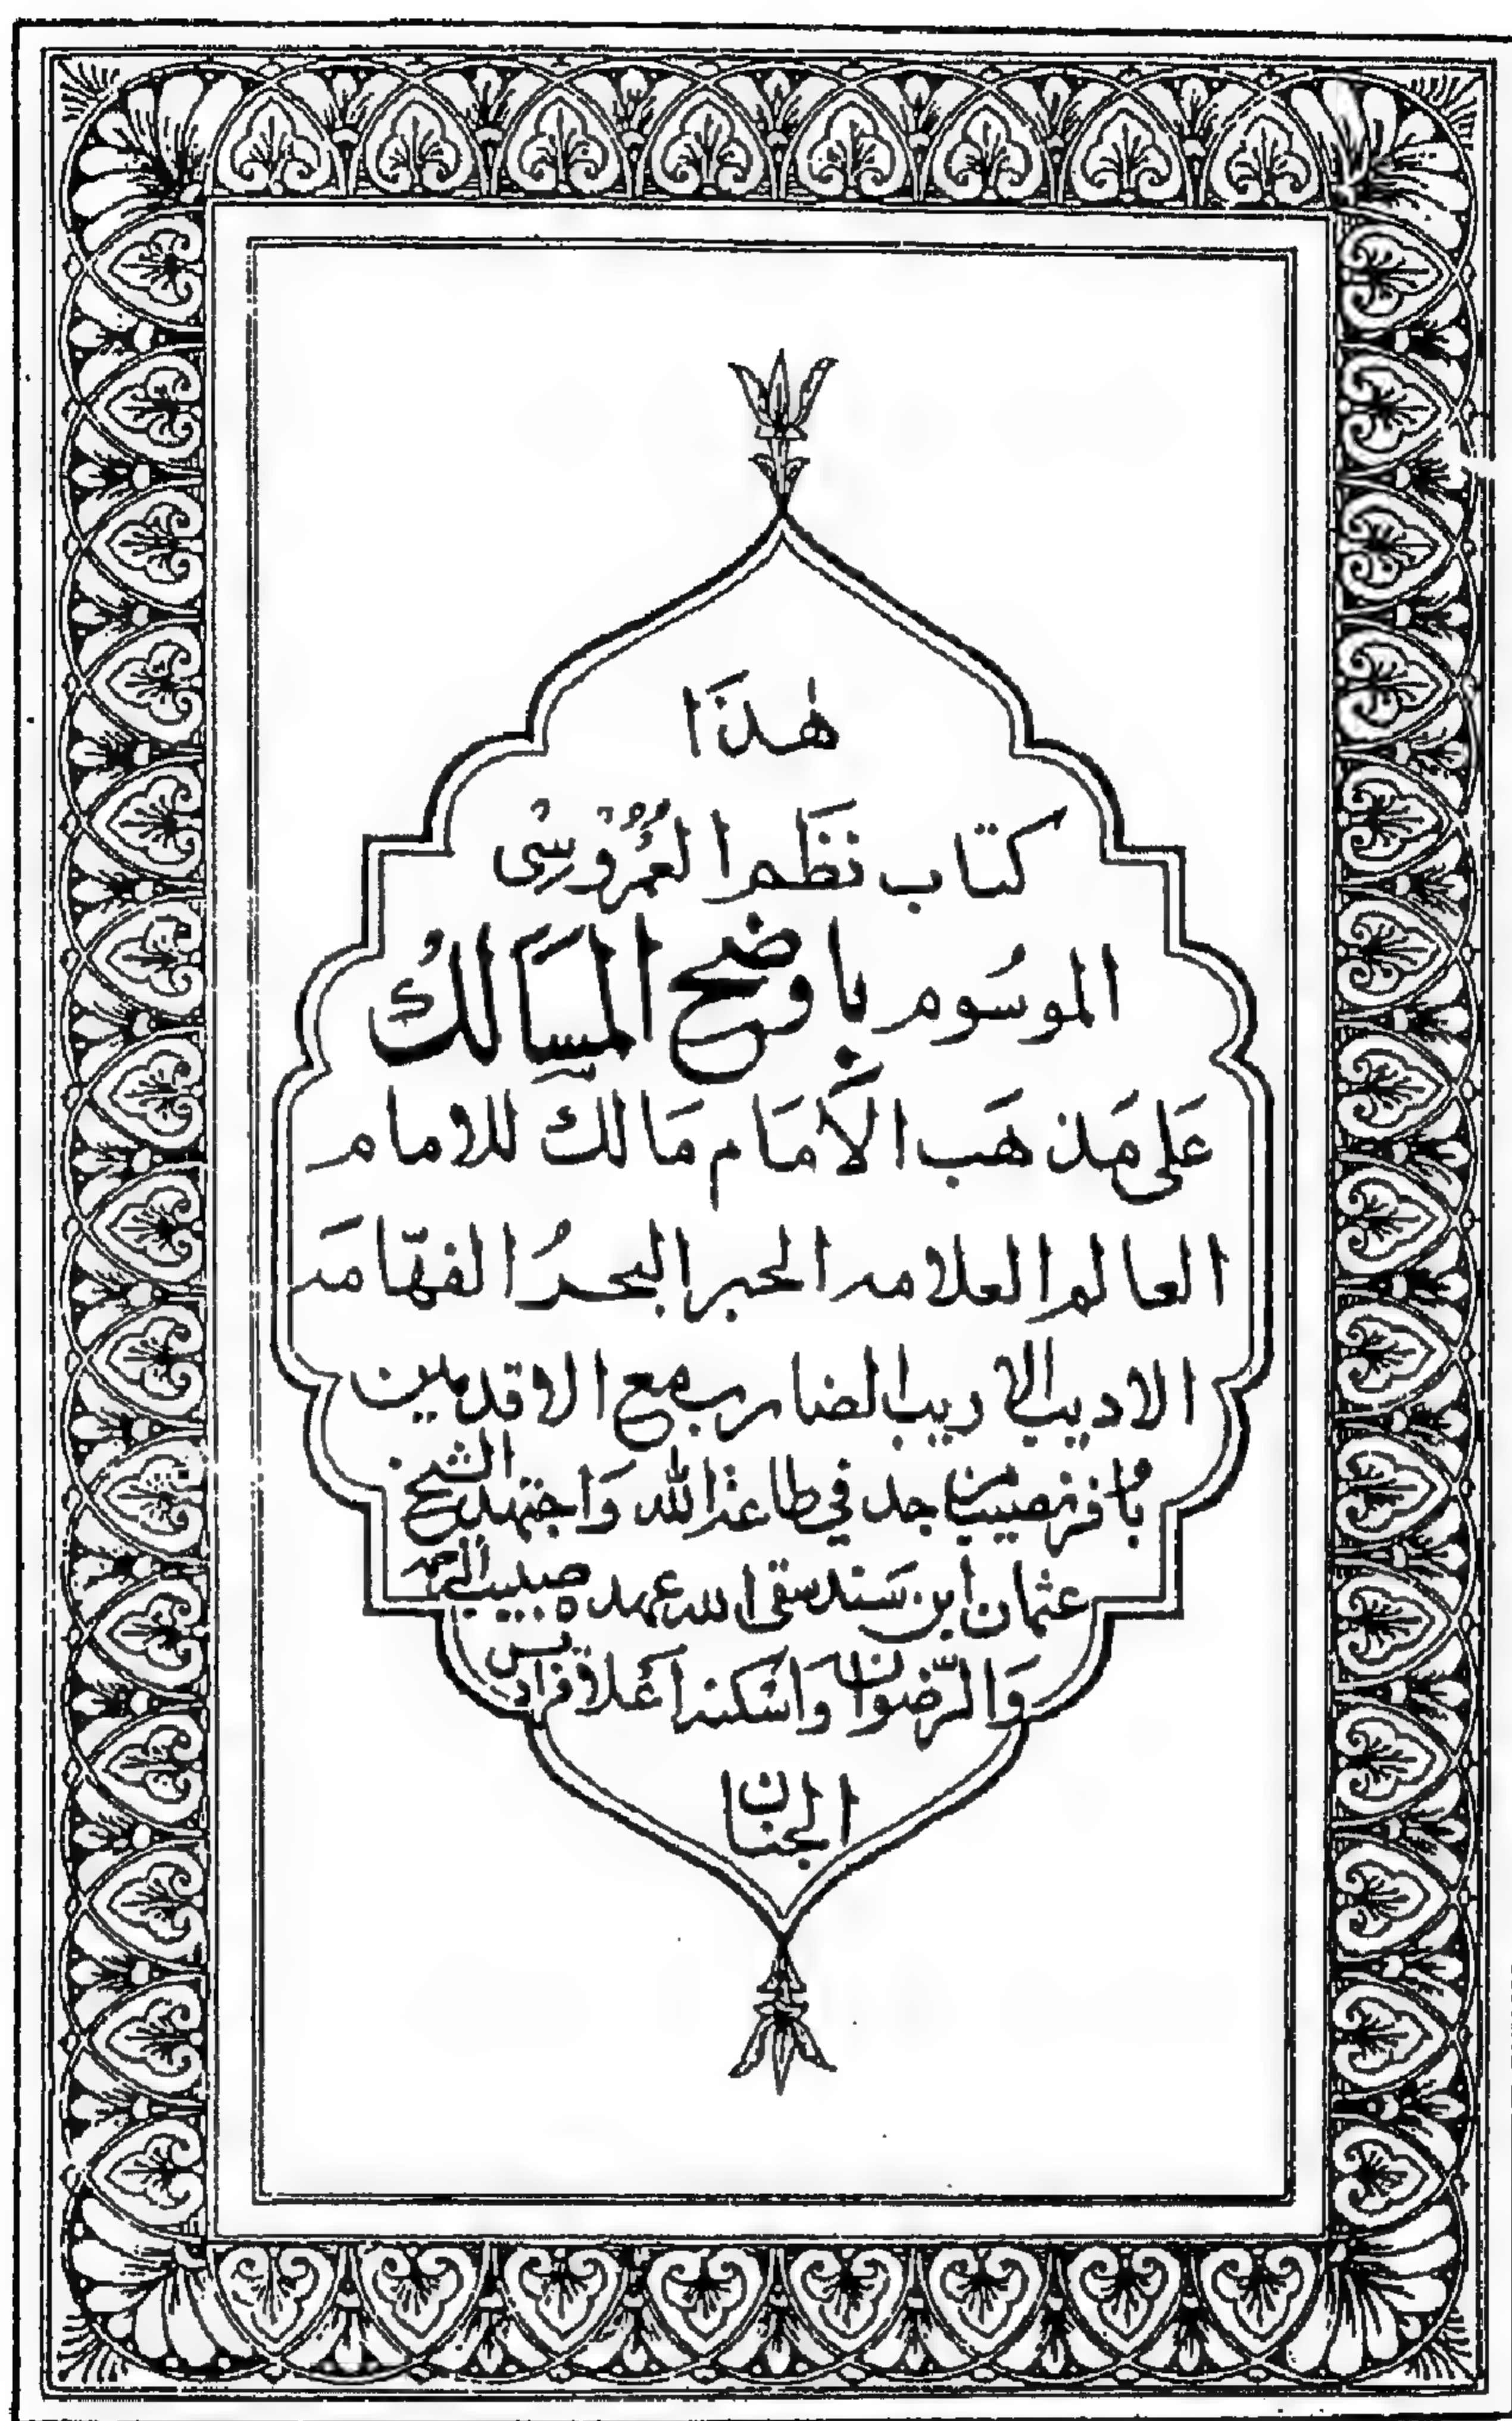 هٰذَا
كتاب نَظَم العُمُرْوسِْى
الموسُوم باوضح المسَالكُ
عَلى مَذهَب الاَمَام مَالك للامام
العالم العلامه الحبر البحرُ الفهّامَه
الاديب الاريب الضارب مع الاقدمين
بُافرنصيب من جد في طاعة الله وَاجتهد الشيخ
عثمان ابن سَند سقى الله عهده صبيب الرحمة
وَالرّضوان وَاسَكنه اعَلا فراديس
الجنان